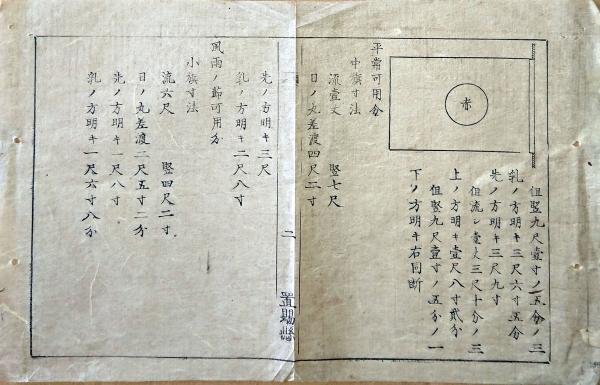 赤
但竪九尺壹寸ノ五分ノ三
乳ノ方明キ三尺六寸五分
先ノ方明キ三尺九寸
但流シ壹丈三尺十分ノ三
上ノ方明キ壹尺八寸貮分
但竪九尺壹寸ノ五分ノ一
下ノ方明キ右同断
平常可用分
中旗寸法
流壹丈 竪七尺
日ノ丸差渡四尺二寸
先ノ方明キ三尺
乳ノ方明キ二尺八寸
風雨ノ節可用分
小旗寸法
流六尺 竪四尺二寸
日ノ丸差渡二尺五寸二分
先ノ方明キ一尺八寸
乳ノ方明キ一尺六寸八分
二
置賜縣